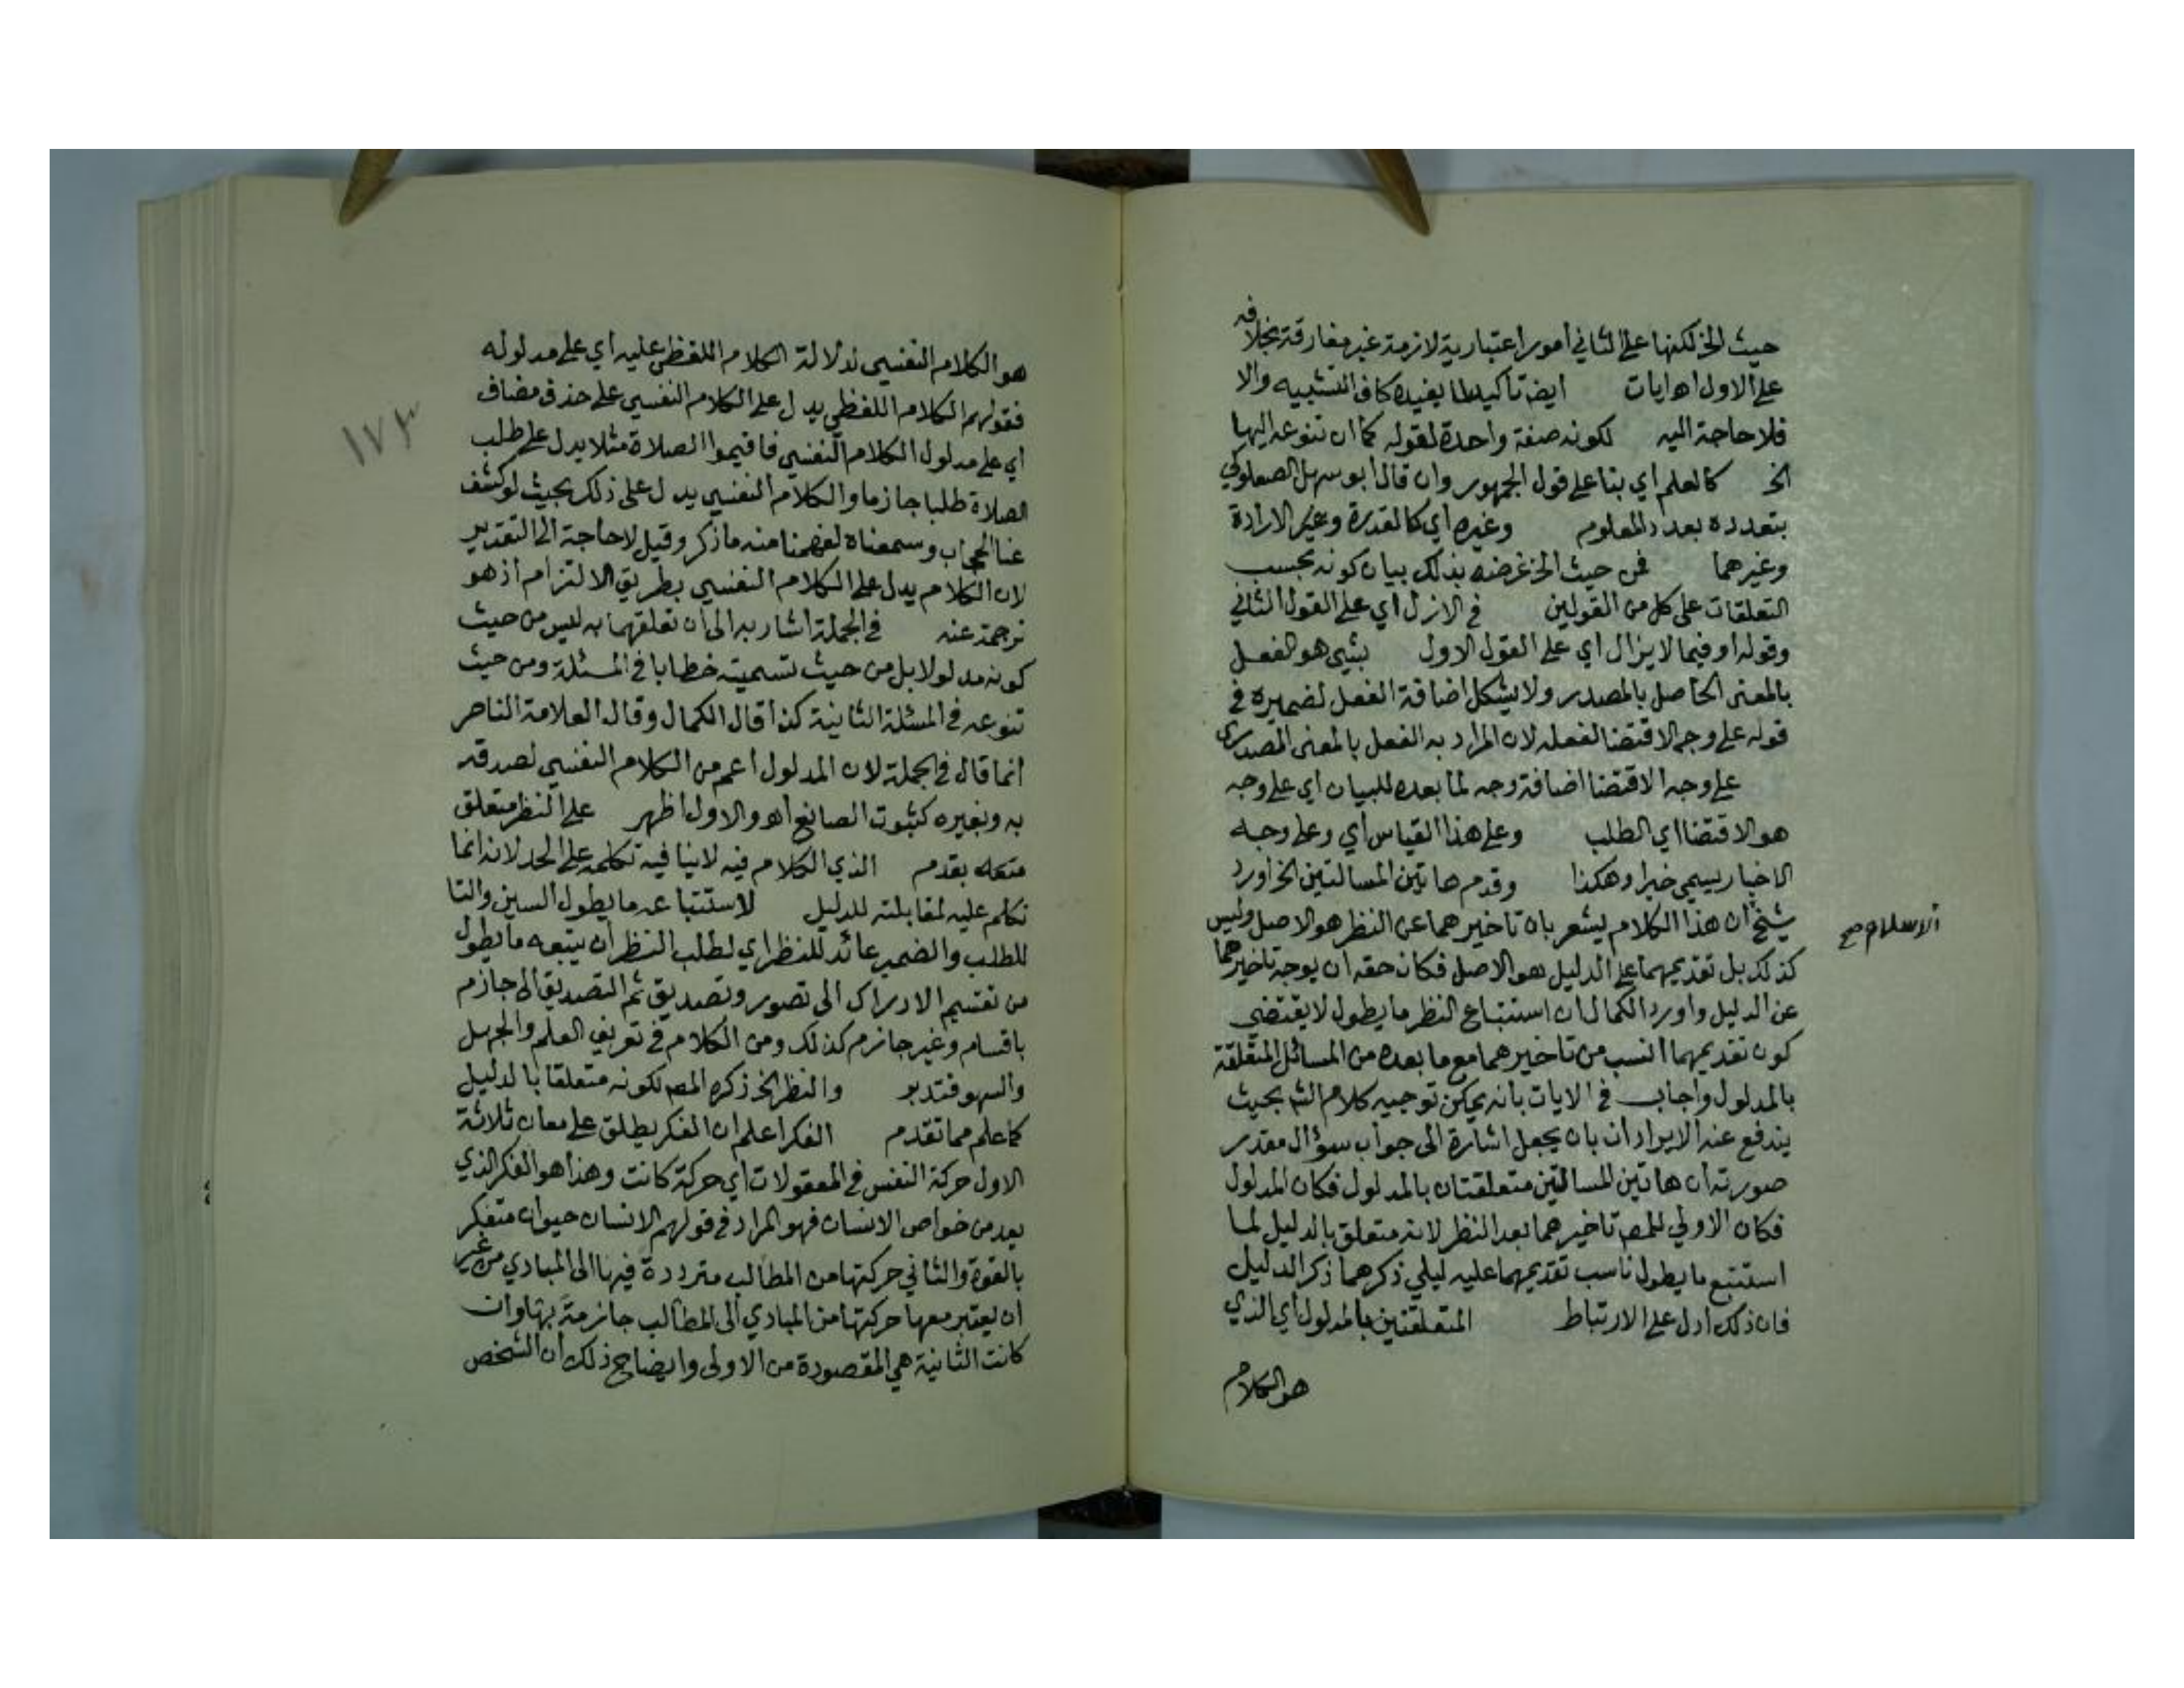 حيث الخ لكنها على الثاني أمور اعتبارية لازمة غير مفارقة بخلافه
على الاول اه ايات ايضا تاكيد لما يفيده كاف التشبيه والا
فلا حاجة اليه لكونه صفة واحدة لقوله كما ان تنوعه اليها
الخ كالعلم اي بنا على قول الجمهور وان قال ابو سهل الصعلوكي
بتعدده بعدد المعلوم وغيره اي كالقدرة وغير الارادة
وغيرهما فمن حيث الخ غرضه بذلك بيان كونه بحسب
التعلقات على كل من القولين في الازل اي على القول الثاني
وقوله او فيما لا يزال اي على القول الاول بشيى هو الفعل
بالمعنى الحاصل بالمصدر ولا يشكل اضافة الفعل لضميره في
قوله على وجه الاقتضا لفعله لان المراد به الفعل بالمعنى المصدري
على وجه الاقتضا اضافة وجه لما بعده للبيان اي على وجه
هو الاقتضا اي الطلب وعلى هذا القياس اي وعلى وجه
الاخبار يسمي خبرا وهكذا وقدم هاتين المسالتين الخ اورد
شيخ ان هذا الكلام يشعر بان تاخيرهما عن النظر هو الاصل وليس
الاسلام صح
كذلك بل تقديمهما على الدليل هو الاصل فكان حقه ان يوجه تاخيرهما
عن الدليل واورد الكمال ان استتباع النظر ما يطول لا يقتضي
كون تقديمهما انسب من تاخيرهما مع ما بعده من المسائل المتعلقة
بالمدلول واجاب في الايات بانه يمكن توجيه كلام الش بحيث
يندفع عنه الايرادان بان يجعل اشارة الى جواب سؤال مقدر
صورته ان هاتين المسالتين متعلقتان بالمدلول فكان المدلول
فكان الاولي للمص تاخيرهما بعد النظر لانه متعلق بالدليل لما
استتبع ما يطول ناسب تقديمهما عليه ليلي ذكرهما ذكر الدليل
فان ذلك ادل على الارتباط المتعلقتين بالمدلول اي الذي
هو الكلام
١٧٣
هو الكلام النفسي لدلالة الكلام اللفظي عليه اي على مدلوله
فقولهم الكلام اللفظي يدل على الكلام النفسي على حذف مضاف
اي على مدلول الكلام النفسي فاقيموا الصلاة مثلا يدل على طلب
الصلاة طلبا جازما والكلام النفسي يدل على ذلك بحيث لو كشف
عنا الحجاب وسمعناه لفهمنا منه ما ذكر وقيل لا حاجة الى التقدير
لان الكلام يدل على الكلام النفسي بطريق الالتزام اذ هو
ترجمة عنه في الجملة اشار به الى ان تعلقهما به ليس من حيث
كونه مدلولا بل من حيث تسميته خطابا في المسئلة ومن حيث
تنوعه في المسئلة الثانية كذا قال الكمال وقال العلامة الناصر
انما قال في الجملة لان المدلول اعم من الكلام النفسي لصدقه
به وبغيره كثبوت الصانع اه والاول اظهر على النظر متعلق
متعلق بقدم الذي الكلام فيه لا ينافيه تكلمه على الحد لانه انما
تكلم عليه لمقابلته للدليل لاستتباعه ما يطول السين والتا
للطلب والضمير عائد للنظر اي لطلب النظر ان يتبعه ما يطول
من تقسيم الادراك الى تصور وتصديق ثم التصديق الى جازم
باقسام وغير جازم كذلك ومن الكلام في تعريف العلم والجهل
والسهو فتدبر والنظر الخ ذكره المص لكونه متعلقا بالدليل
كما علم مما تقدم الفكر اعلم ان الفكر يطلق على معان ثلاثة
الاول حركة النفس في المعقولات اي حركة كانت وهذا هو الفكر الذي
يعد من خواص الانسان فهو المراد في قولهم الانسان حيوان متفكر
بالقوة والثاني حركتها من المطالب مترددة فيها الى المبادي من غير
ان يعتبر معها حركتها من المبادي الى المطالب جازمة بها وان
كانت الثانية هي المقصودة من الاولى وايضاح ذلك ان الشخص